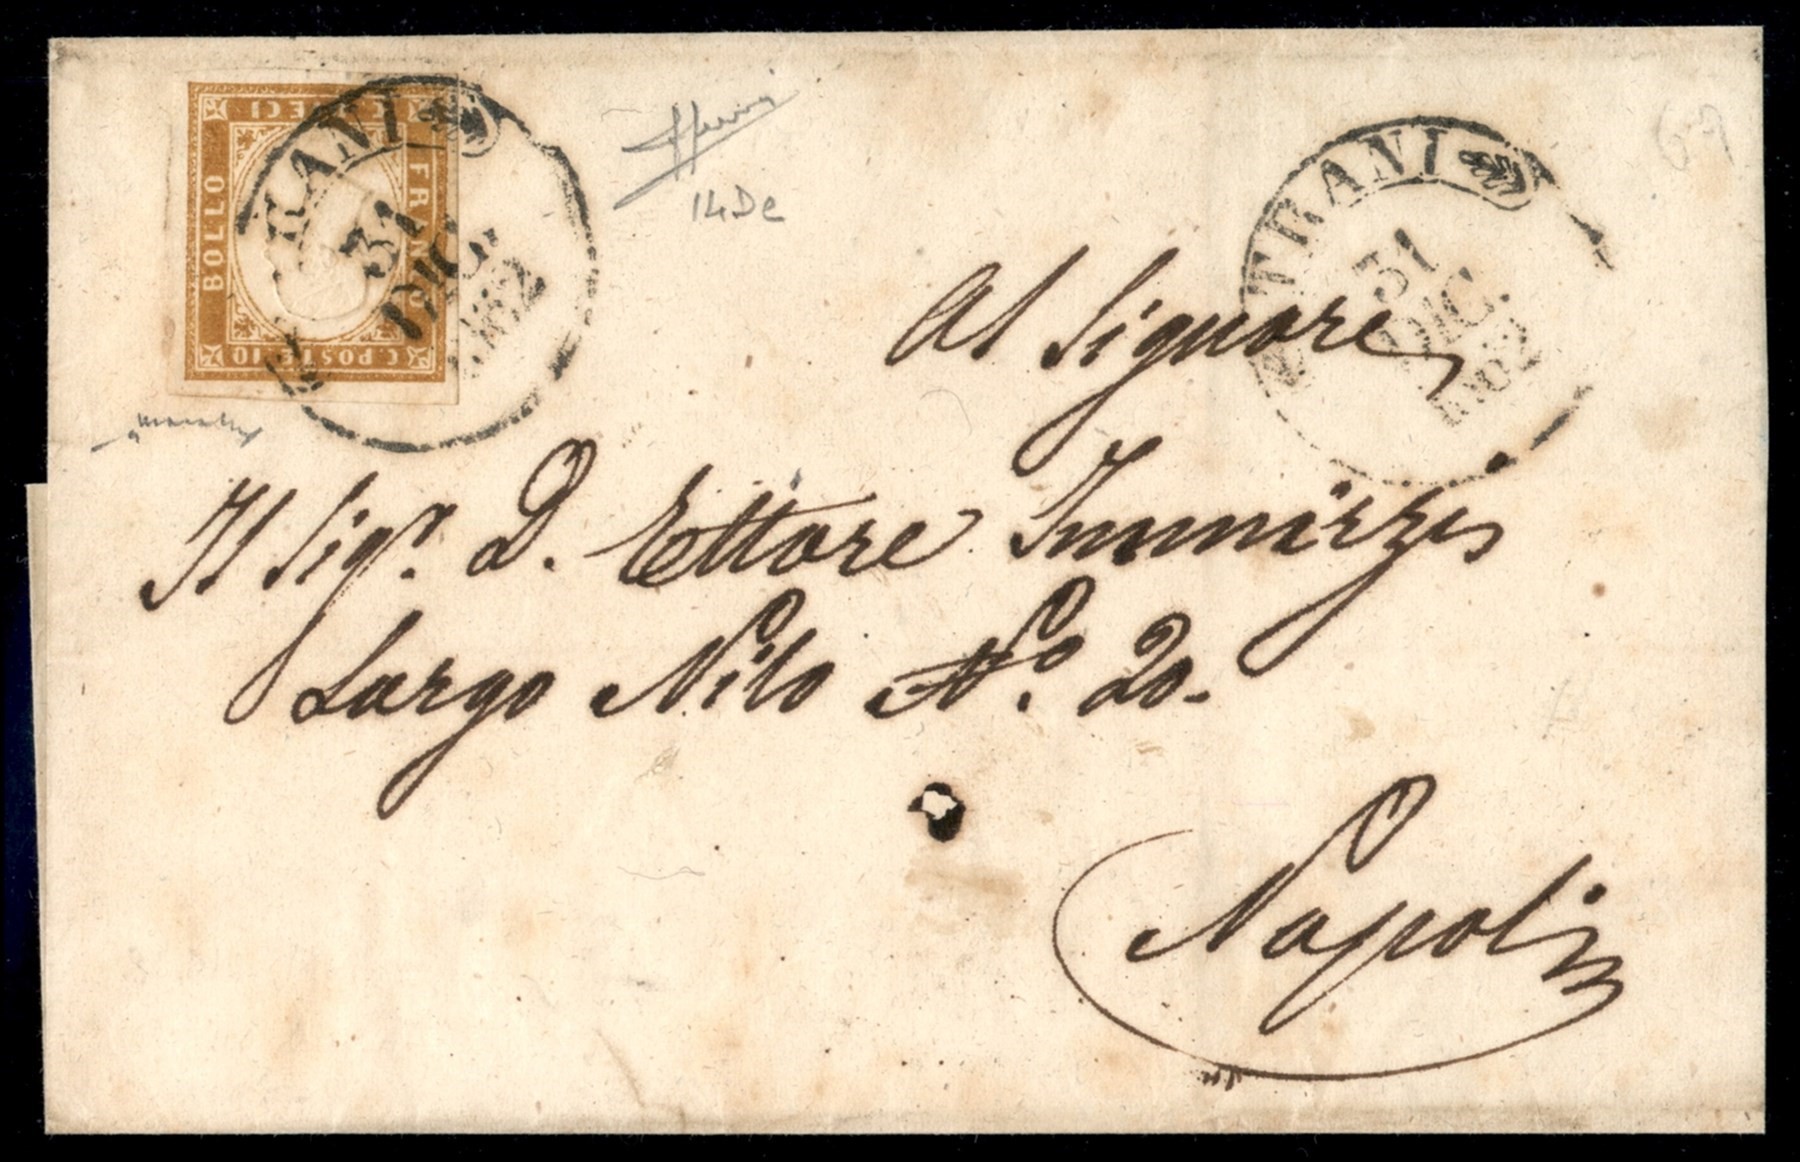 C. DIECI
BOLLO
FRANCO
C. POSTE 10
TRANI
31
DIC.
1862
14De
TRANI
31
DIC.
1862
69
Al Signore
Il Sigr. D. Ettore
Largo Nilo No. 20.
Napoli